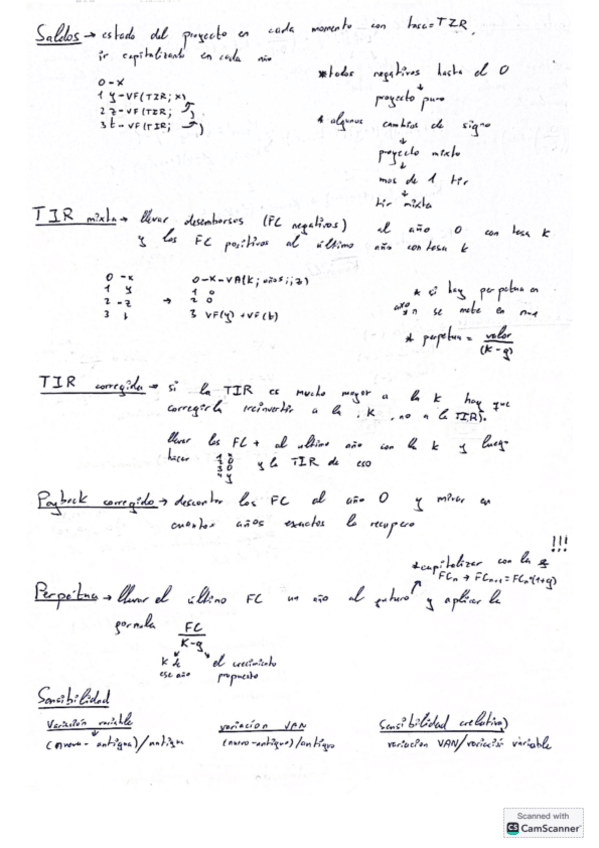 Saldos → estado del proyecto en cada momento con tasa=TIR,
ir capitalizando en cada año
0 -x
1 y-VF(TIR; x)
2 z-VF(TIR; )
3 t-VF(TIR; )
*todos negativos hasta el 0
↓
proyecto puro
* algunos cambios de signo
↓
proyecto mixto
↓
mas de 1 tir
↓
tir mixta
TIR mixta → llevar desembolsos (FC negativos) al año 0 con tasa k
y los FC positivos al último año con tasa k
0 -x
1 y
2 -z
3 t
→
0-x-VA(k; años;;z)
1 0
2 0
3 VF(y)+VF(t)
* si hay perpetua en
año n se mete en n+1
* perpetua = valor/(k-g)
TIR corregida → si la TIR es mucho mayor a la k hay que
corregirla (reinvertir a la K, no a la TIR).
llevar los FC + al ultimo año con la k y luego
hacer y la TIR de eso
Payback corregido → descontar los FC al año 0 y mirar en
cuantos años exactos lo recupero
!!!
*capitalizar con la g
FCn → FCn+1=FCn*(1+g)
Perpetua → llevar el último FC un año al futuro y aplicar la
formula FC/K-g
k de
ese año
el crecimiento
propuesto
Sensibilidad
Variación variable
(nueva-antigua)/antigua
variacion VAN
(nuevo-antiguo)/antiguo
Sensibilidad (relativa)
variacion VAN/variación variable
Scanned with
CS CamScanner